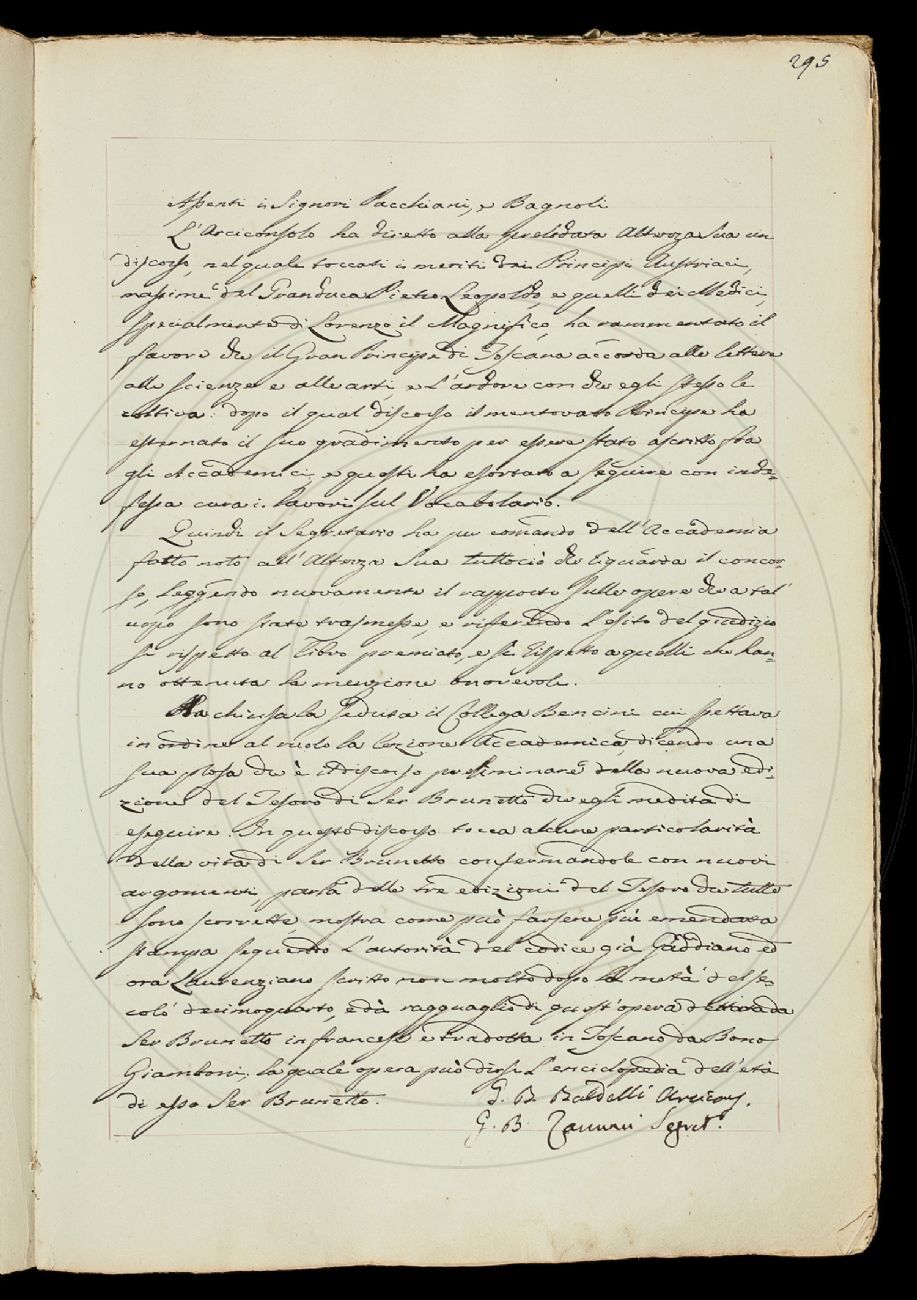 295
Assenti i Signori Pacchiani, e Bagnoli
L'Arciconsolo ha diretto alla prelodata Altezza Sua un
discorso, nel quale toccati i meriti dei Principi Austriaci,
massime del Granduca Pietro Leopoldo, e quelli dei Medici,
specialmente di Lorenzo il Magnifico, ha rammentato il
favore che il Gran Principe di Toscana accorda alle lettere
alle scienze e alle arti, e l'ardore con che egli stesso le
coltiva: dopo il qual discorso il mentovato Principe ha
esternato il suo gradimento per essere stato ascritto fra
gli Accademici, e questi ha esortato a seguire con inde-
fessa cura i lavori sul Vocabolario.
Quindi il Segretario ha per comando dell'Accademia
fatto noto all'Altezza Sua tuttociò che riguarda il concor-
so, leggendo nuovamente il rapporto sulle opere che a tal'
uopo sono state trasmesse, e riferendo l'esito del giudizio
sì rispetto al libro premiato, e sì rispetto a quelli che han-
no ottenuta la menzione onorevole.
Ha chiusa la seduta il Collega Bencini cui spettava
in ordine al ruolo la lezione Accademica, dicendo una
sua prosa che è il discorso preliminare della nuova edi-
zione del Tesoro di Ser Brunetto che egli medita di
eseguire. In questo discorso tocca alcune particolarità
della vita di Ser Brunetto confermandole con nuovi
argomenti, parla delle tre edizioni del Tesoro che tutte
sono scorrette, mostra come può farsene più emendata
stampa seguendo l'autorità del codice già Gaddiano ed
ora Laurenziano scritto non molto dopo la metà del se-
colo decimoquarto, e dà ragguaglio di quest'opera dettata da
Ser Brunetto in francese e tradotta in Toscano da Bono
Giamboni, la quale opera può dirsi l'enciclopedia dell'età
di esso Ser Brunetto.
G. B. Baldelli Arcicons.
G. B. Zannoni Segret.